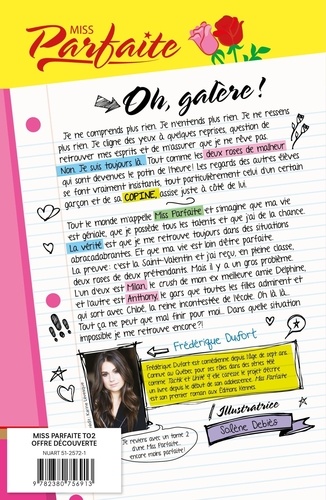 MISS
Parfaite
Oh, galère !
Je ne comprends plus rien. Je n'entends plus rien. Je ne ressens
plus rien. Je cligne des yeux à quelques reprises, question de
retrouver mes esprits et de m'assurer que je ne rêve pas.
Non. Je suis toujours là... Tout comme les deux roses de malheur
qui sont devenues le potin de l'heure! Les regards des autres élèves
se font vraiment insistants, tout particulièrement celui d'un certain
garçon et de sa COPINE, assise juste à côté de lui.
Tout le monde m'appelle Miss Parfaite et s'imagine que ma vie
est géniale, que je possède tous les talents et que j'ai de la chance.
La vérité est que je me retrouve toujours dans des situations
abracadabrantes. Et que ma vie est bien loin d'être parfaite.
La preuve: c'est la Saint-Valentin et j'ai reçu, en pleine classe,
deux roses de deux prétendants. Mais il y a un gros problème.
L'un d'eux est Milan, le crush de mon ex meilleure amie Delphine,
et l'autre est Anthony, le gars que toutes les filles admirent et
qui sort avec Chloé, la reine incontestée de l'école. Oh là là...
Tout ça ne peut que mal finir pour moi... Dans quelle situation
impossible je me retrouve encore?!
Frédérique Dufort
Frédérique Dufort est comédienne depuis l'âge de sept ans.
Connue au Québec pour ses rôles dans des séries télé
comme Tactik et Unité 9, elle caresse le projet d'écrire
un livre depuis le début de son adolescence. Miss Parfaite
est son premier roman aux Éditions Kennes.
Illustratrice
Solène Debiès
Je reviens avec un tome 2
d'une Miss Parfaite...
encore moins parfaite!
MISS PARFAITE T02
OFFRE DÉCOUVERTE
NUART 51-2572-1
9 782380 756913